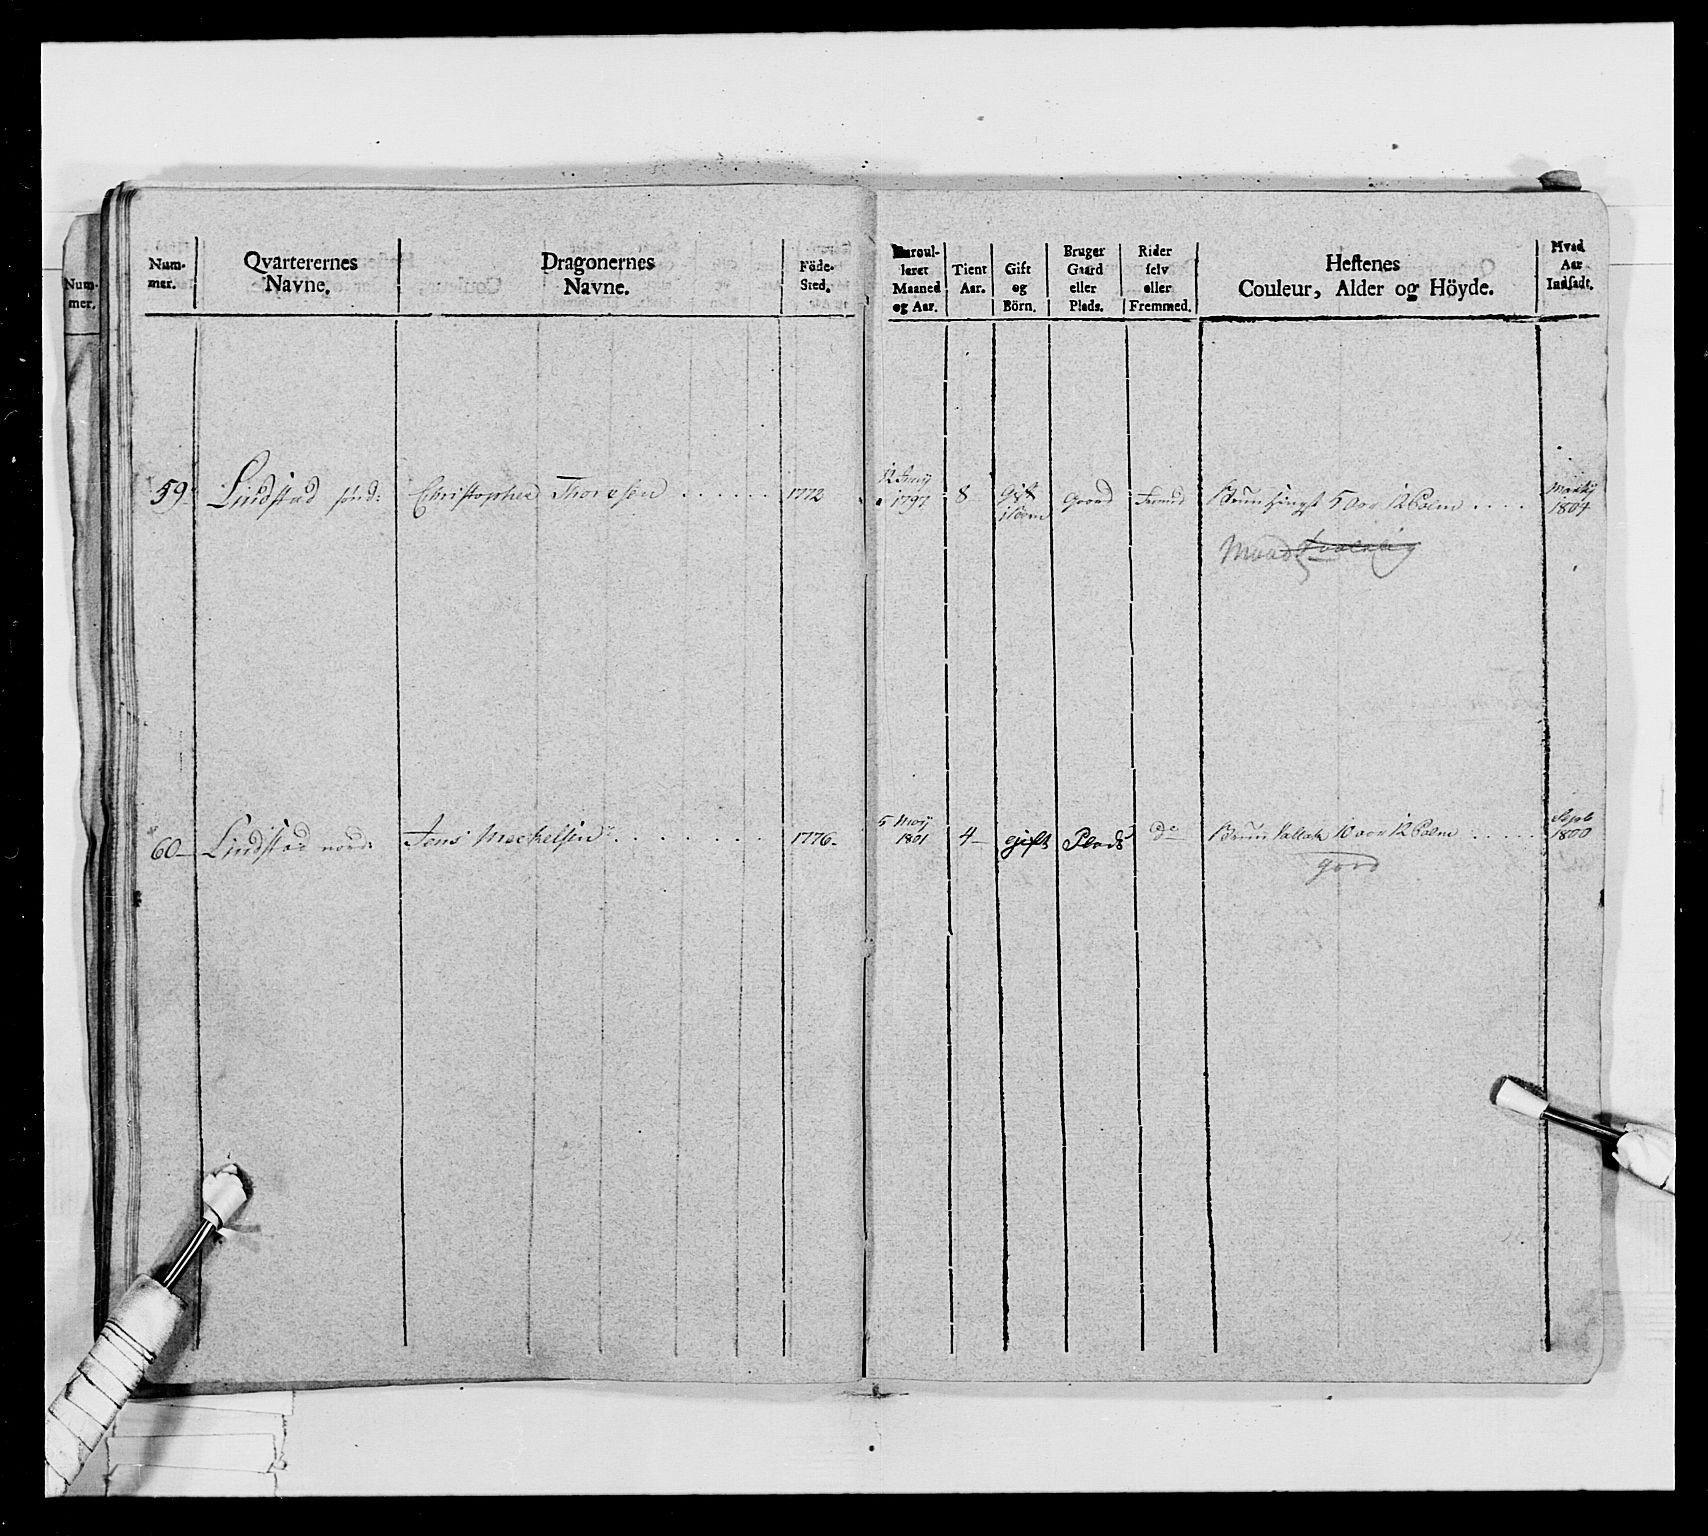 Num-
mer.
Num-
mer.
Qvarterernes
Navne.
Dragonernes
Navne.
Föde-
Sted.
Enroul-
leret
Maaned
og Aar.
Tient
Aar.
Gift
og
Börn.
Bruger
Gaard
eller
Plads.
Rider
selv
eller
Fremmed.
Hestenes
Couleur, Alder og Höyde.
Hvad
Aar
Indsadt.
59- Lindstad sönd: Christopher Thoresen . . . . . . 1772
12 Junij
1797 8 Gift
1 Barn Gaard Fremd Bruun Hingst 5 Aar 12 Palm . . . .
1804
60- Lindstad nord: Jens Meckelsen . . . . . . . 1776-
5 Maij
1801 4- gift Plads do Bruun Vallak 10 aar 12 Palm . . . . .
Sept
1800
god